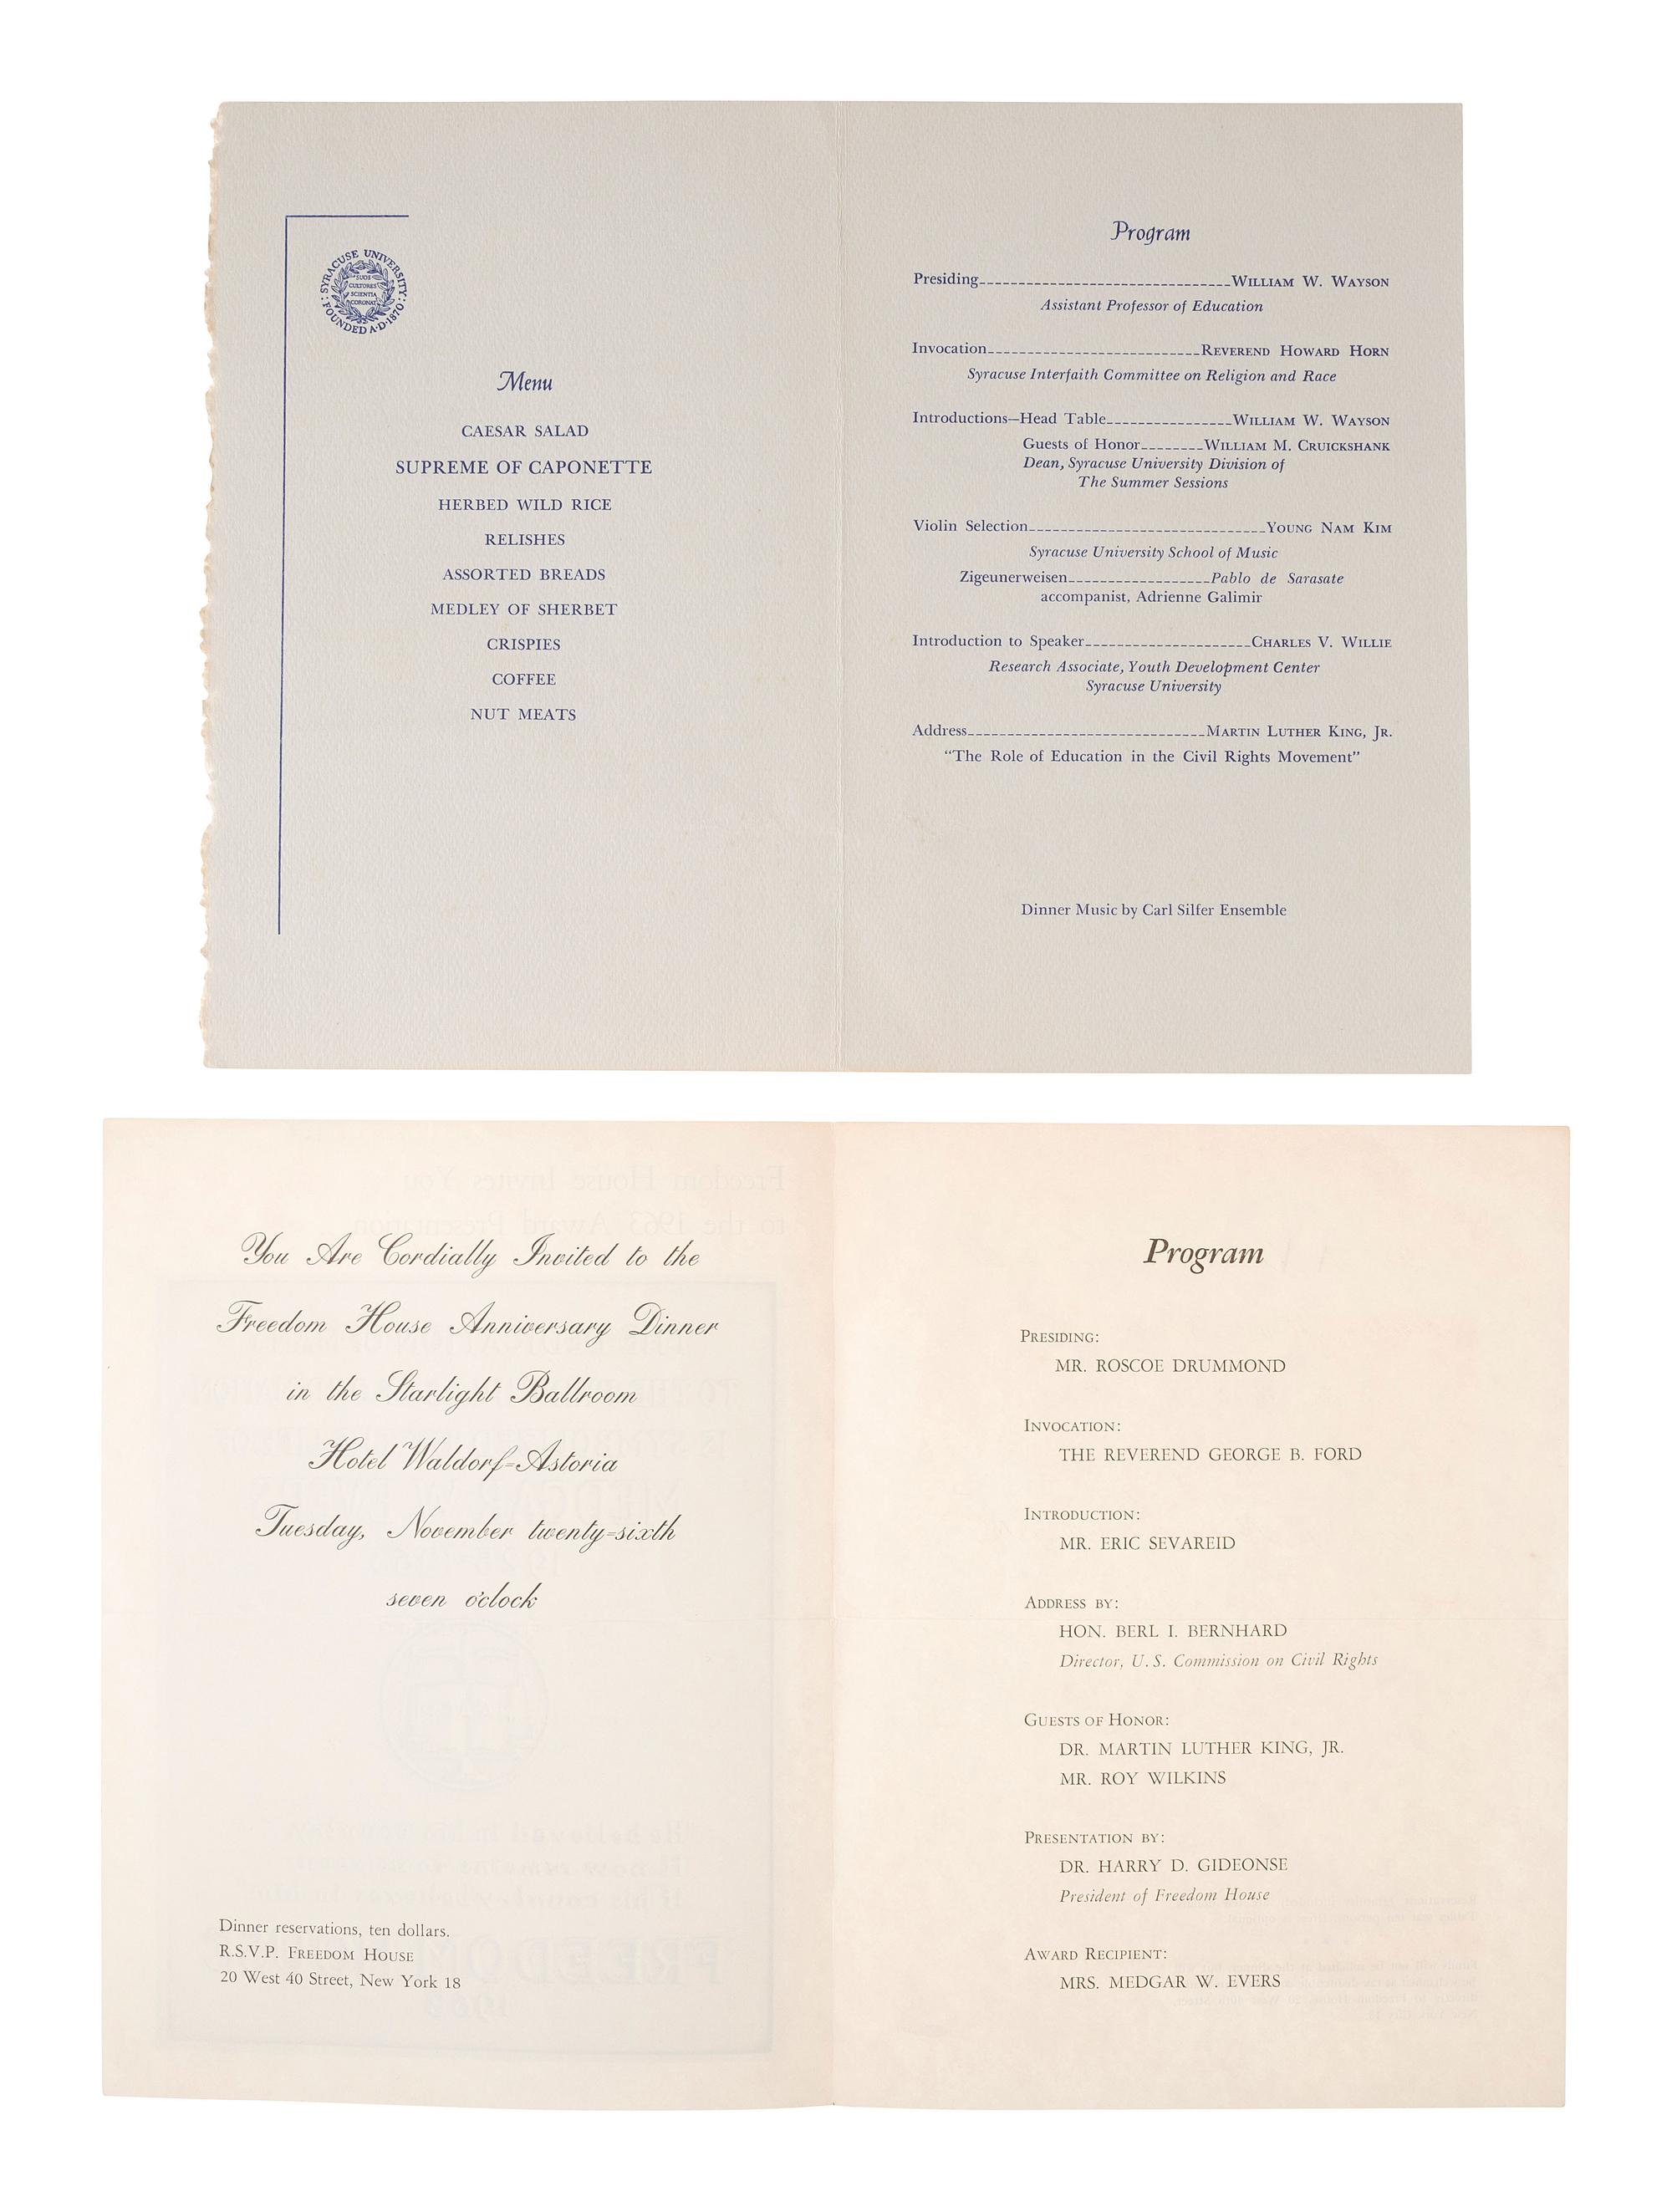 SYRACUSE UNIVERSITY
FOUNDED A·D·1870
SUOS
CULTORES
SCIENTIA
CORONAT
Menu
CAESAR SALAD
SUPREME OF CAPONETTE
HERBED WILD RICE
RELISHES
ASSORTED BREADS
MEDLEY OF SHERBET
CRISPIES
COFFEE
NUT MEATS
Program
Presiding WILLIAM W. WAYSON
Assistant Professor of Education
Invocation REVEREND HOWARD HORN
Syracuse Interfaith Committee on Religion and Race
Introductions—Head Table WILLIAM W. WAYSON
Guests of Honor WILLIAM M. CRUICKSHANK
Dean, Syracuse University Division of
The Summer Sessions
Violin Selection YOUNG NAM KIM
Syracuse University School of Music
Zigeunerweisen Pablo de Sarasate
accompanist, Adrienne Galimir
Introduction to Speaker CHARLES V. WILLIE
Research Associate, Youth Development Center
Syracuse University
Address MARTIN LUTHER KING, JR.
“The Role of Education in the Civil Rights Movement”
Dinner Music by Carl Silfer Ensemble
Freedom House Invites You
to the 1963 Award Presentation
You Are Cordially Invited to the
Freedom House Anniversary Dinner
in the Starlight Ballroom
Hotel Waldorf-Astoria
Tuesday, November twenty-sixth
seven o'clock
Dinner reservations, ten dollars.
R.S.V.P. FREEDOM HOUSE
20 West 40 Street, New York 18
Program
PRESIDING:
MR. ROSCOE DRUMMOND
INVOCATION:
THE REVEREND GEORGE B. FORD
INTRODUCTION:
MR. ERIC SEVAREID
ADDRESS BY:
HON. BERL I. BERNHARD
Director, U. S. Commission on Civil Rights
GUESTS OF HONOR:
DR. MARTIN LUTHER KING, JR.
MR. ROY WILKINS
PRESENTATION BY:
DR. HARRY D. GIDEONSE
President of Freedom House
AWARD RECIPIENT:
MRS. MEDGAR W. EVERS